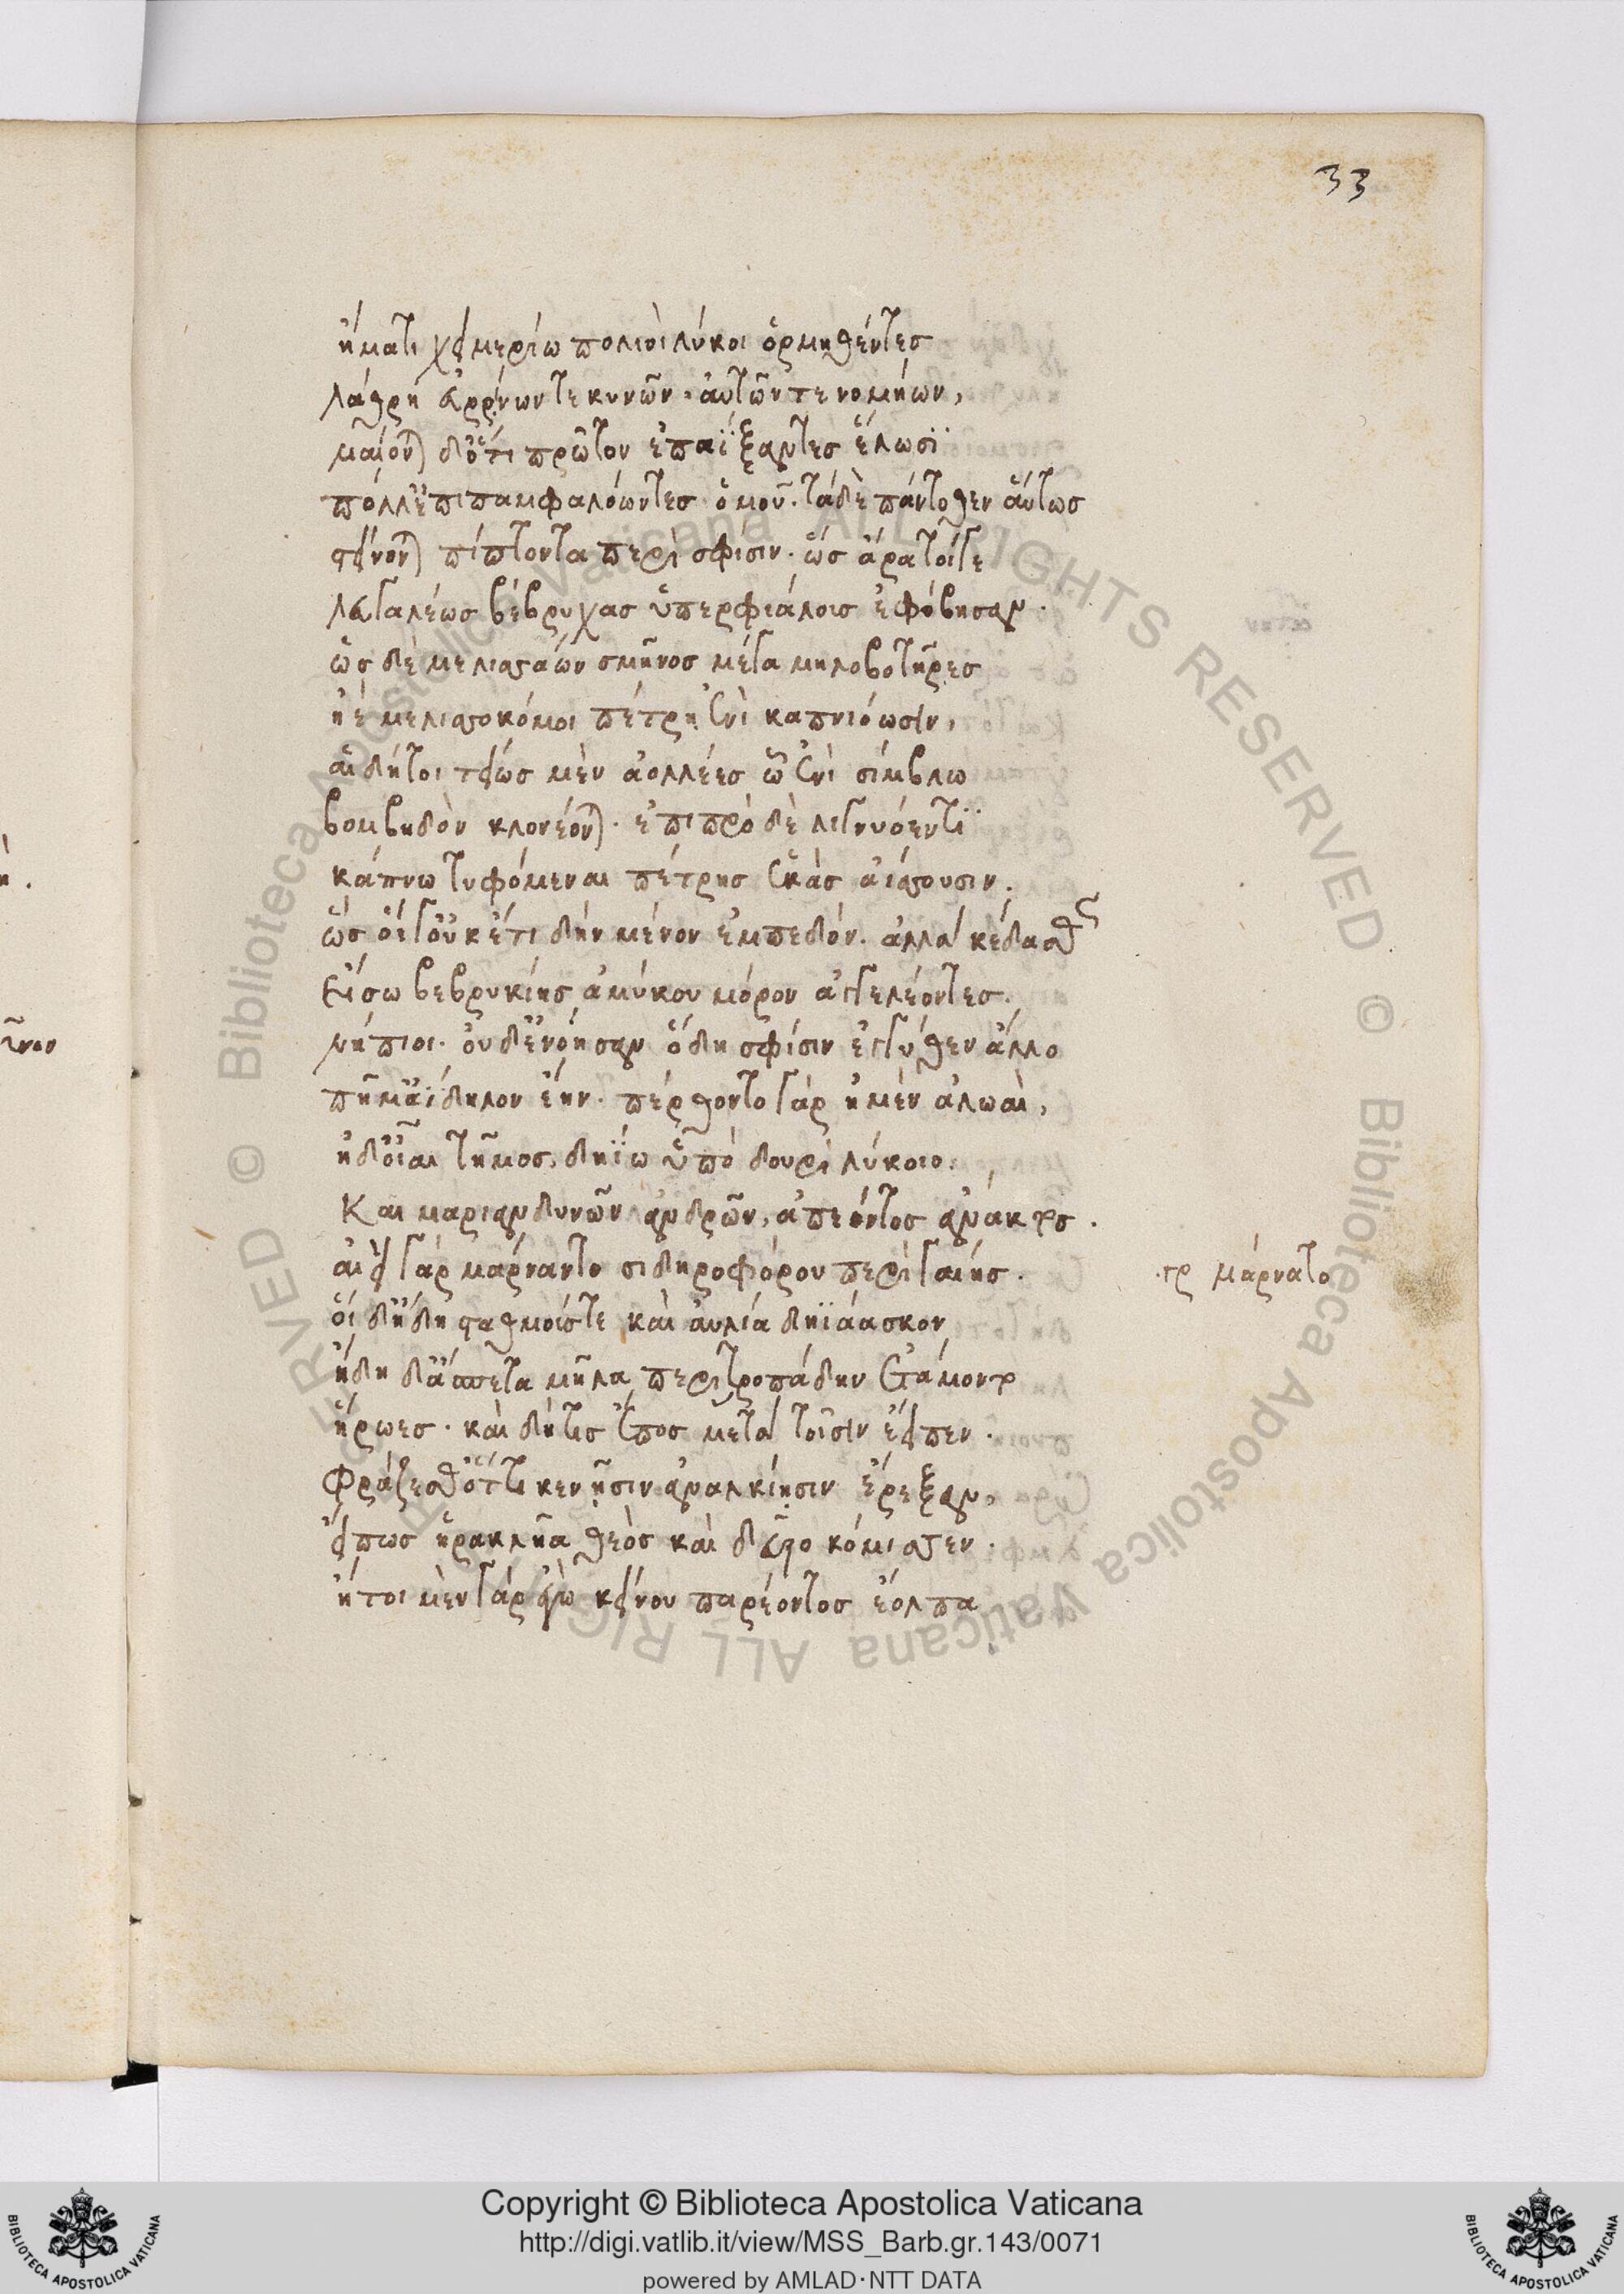 33
ἤματι χειμερίω πολιοὶ λύκοι ὁρμηθέντες
λάθρη εὐρρίνων τε κυνῶν· αὐτῶν τε νομήων,
μαίονται δ' ὅτι πρῶτον ἐπαΐξαντες ἕλωσϊ
πόλλ' ἐπιπαμφαλόωντες ὁμοῦ· τὰ δὲ πάντοθεν αὔτως
στείνονται πίπτοντα περὶ σφίσιν· ὣς ἄρα τοίγε
λευγαλέως βέβρυχας ὑπερφιάλοις ἐφόβησαν·
ὡς δὲ μελισσάων σμῆνος μέγα μηλοβοτῆρες
ἠὲ μελισσοκόμοι πέτρη ἐνὶ καπνιόωσϊν,
αἱ δήτοι τείως μὲν ἀολλέες ὧ ἐνὶ σίμβλω
βομβηδὸν κλονέονται· ἐπιπρὸ δὲ λιγνυόεντϊ
κάπνω τυφόμεναι πέτρης ἑκὰς ἀΐσσουσιν·
ὣς οἵγ' οὐκέτι δὴν μένον ἔμπεδον· ἀλλὰ κέδασθεν
εἴσω βεβρυκίης ἀμύκου μόρον ἀγγελέοντες·
νήπιοι· οὐδ' ἐνόησαν ὃ δή σφίσιν ἐγγύθεν ἄλλο
πῆμ' ἀΐδηλον ἔην· πέρθοντο γὰρ ἠμὲν ἀλωαὶ,
ἠδ' οἶαι τῆμος, δηΐω ὑπὸ δουρὶ λύκοιο·
Καὶ μαριανδυνῶν ἀνδρῶν, ἀπεόντος ἄνακτος·
αἰεὶ γὰρ μάρναντο σιδηροφόρου περὶ γαίης·
οἱ δ' ἤδη σταθμοίς τε καὶ αὐλία δηϊάασκον
ἤδη δ' ἄσπετα μῆλα περιτροπάδην ἐτάμοντο
ἥρωες· καὶ δή τις ἔπος μετὰ τοῖσιν ἔειπεν·
γρ μάρνατο
Φράζεσθ' ὅττι κεν ᾗσιν ἀναλκίῃσιν ἔρεξαν,
εἴπως ἡρακλῆα θεὸς καὶ δεῦρο κόμισσεν·
ἤτοι μὲν γὰρ ἐγὼ κείνου παρέοντος ἐόλπα
Copyright © Biblioteca Apostolica Vaticana
http://digi.vatlib.it/view/MSS_Barb.gr.143/0071
powered by AMLAD·NTT DATA